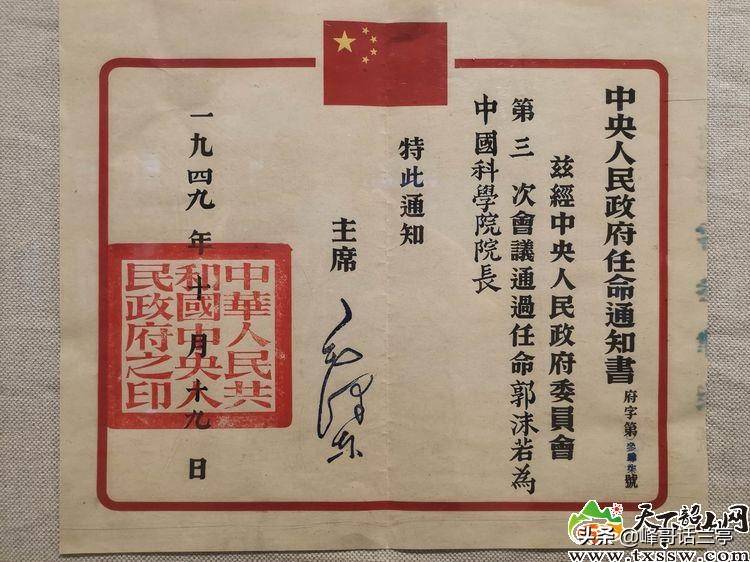 中央人民政府任命通知書
府字第
號
茲經中央人民政府委員會
第三次會議通過任命郭沫若為
中國科學院院長
特此通知
主席
毛澤東
一九四九年十月十九日
中華人民共
和國中央人
民政府之印
天下韶山网
头条 @峰哥话兰亭
www.txssw.com